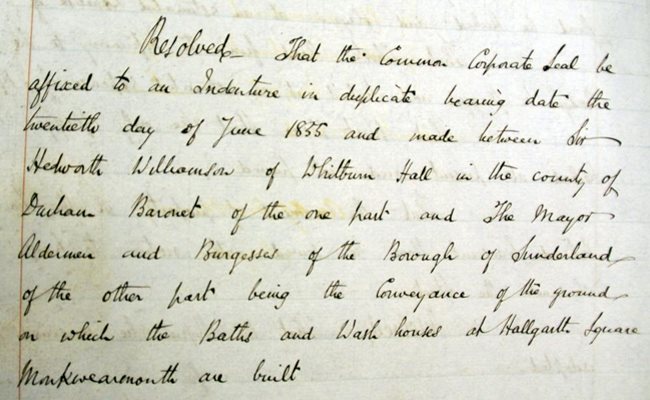 Resolved – That the Common Corporate Seal be
affixed to an Indenture in duplicate bearing date the
twentieth day of June 1855 and made between Sir
Hedworth Williamson of Whitburn Hall in the county of
Durham Baronet of the one part and The Mayor
Aldermen and Burgesses of the Borough of Sunderland
of the other part being the Conveyance of the ground
on which the Baths and Wash houses at Hallgarth Square
Monkwearmouth are built